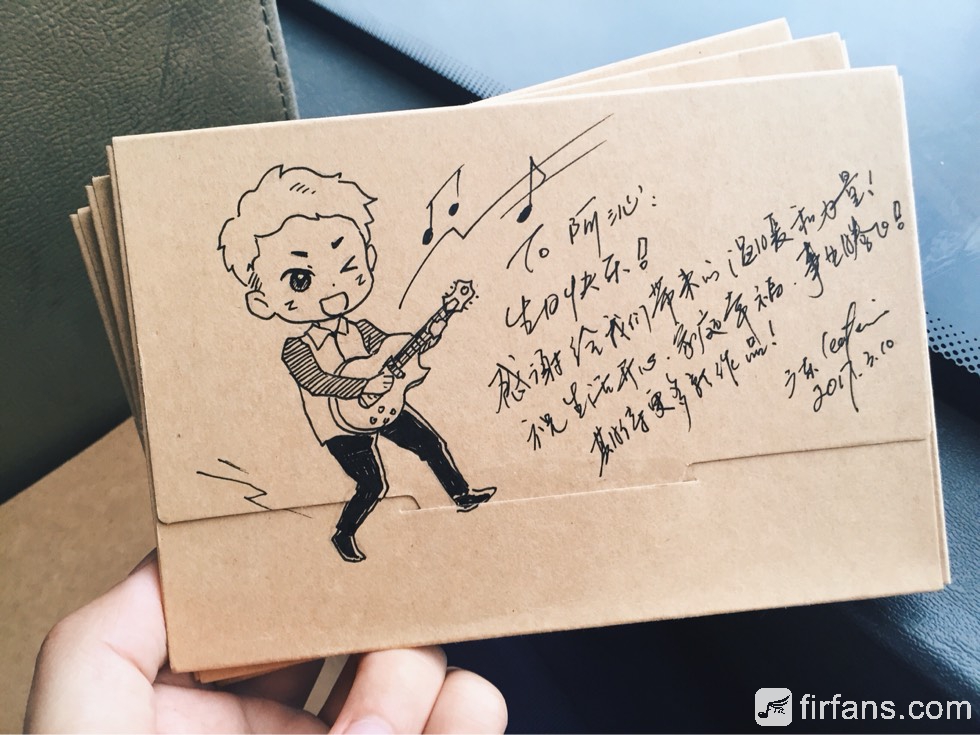 To 阿沁:
生日快乐!
感谢给我们带来的温暖和力量!
祝生活开心、家庭幸福、事业腾飞!
期待更多新作品!
2017.3.10
firfans.com